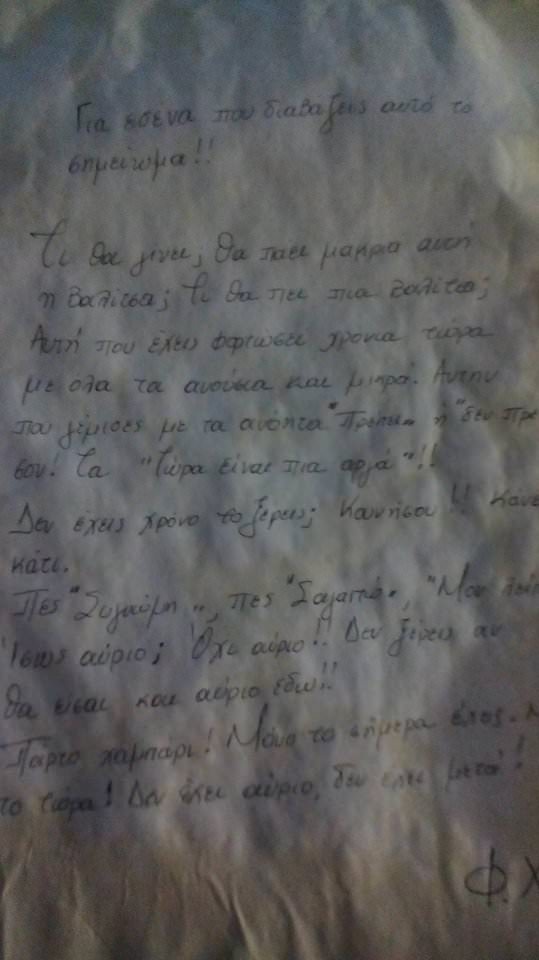 Για εσενα που διαβαζεις αυτό το
σημείωμα!!
Τι θα γινει; Θα παει μακρια αυτή
η βαλίτσα; Τι θα πει πια βαλίτσα;
Αυτή που έχεις φορτώσει χρονια τώρα
με όλα τα ανούσια και μικρά. Αυτην
που γέμισες με τα ανόητα "Πρεπει" ή "δεν πρε
σου! Τα "τώρα είναι πια αργά"!!
Δεν έχεις χρόνο το ξέρεις; Κουνήσου!! Κάνε
κάτι.
Πες "Συγνώμη", πες "Σαγαπώ", "Μου λείπ
Ίσως αύριο; Όχι αύριο!! Δεν ξέρεις αν
θα εισαι και αύριο εδώ!!
Παρτο χαμπάρι! Μόνο το σήμερα έχεις. Μ
το τώρα! Δεν έχει αύριο, δεν εχει μετά!!
Φ. Χ